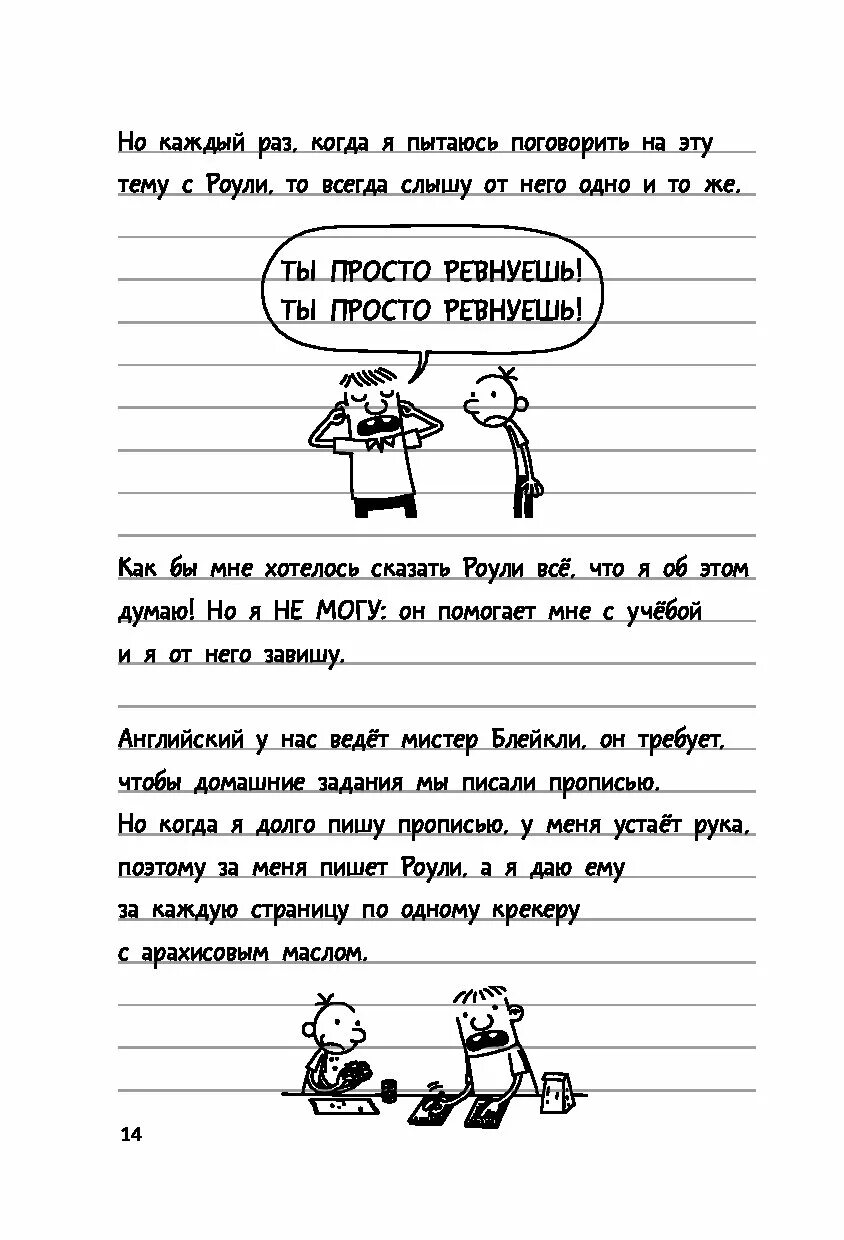 Но каждый раз, когда я пытаюсь поговорить на эту
тему с Роули, то всегда слышу от него одно и то же.
ТЫ ПРОСТО РЕВНУЕШЬ!
ТЫ ПРОСТО РЕВНУЕШЬ!
Как бы мне хотелось сказать Роули всё, что я об этом
думаю! Но я НЕ МОГУ: он помогает мне с учёбой
и я от него завишу.
Английский у нас ведёт мистер Блейкли, он требует,
чтобы домашние задания мы писали прописью.
Но когда я долго пишу прописью, у меня устаёт рука,
поэтому за меня пишет Роули, а я даю ему
за каждую страницу по одному крекеру
с арахисовым маслом.
14